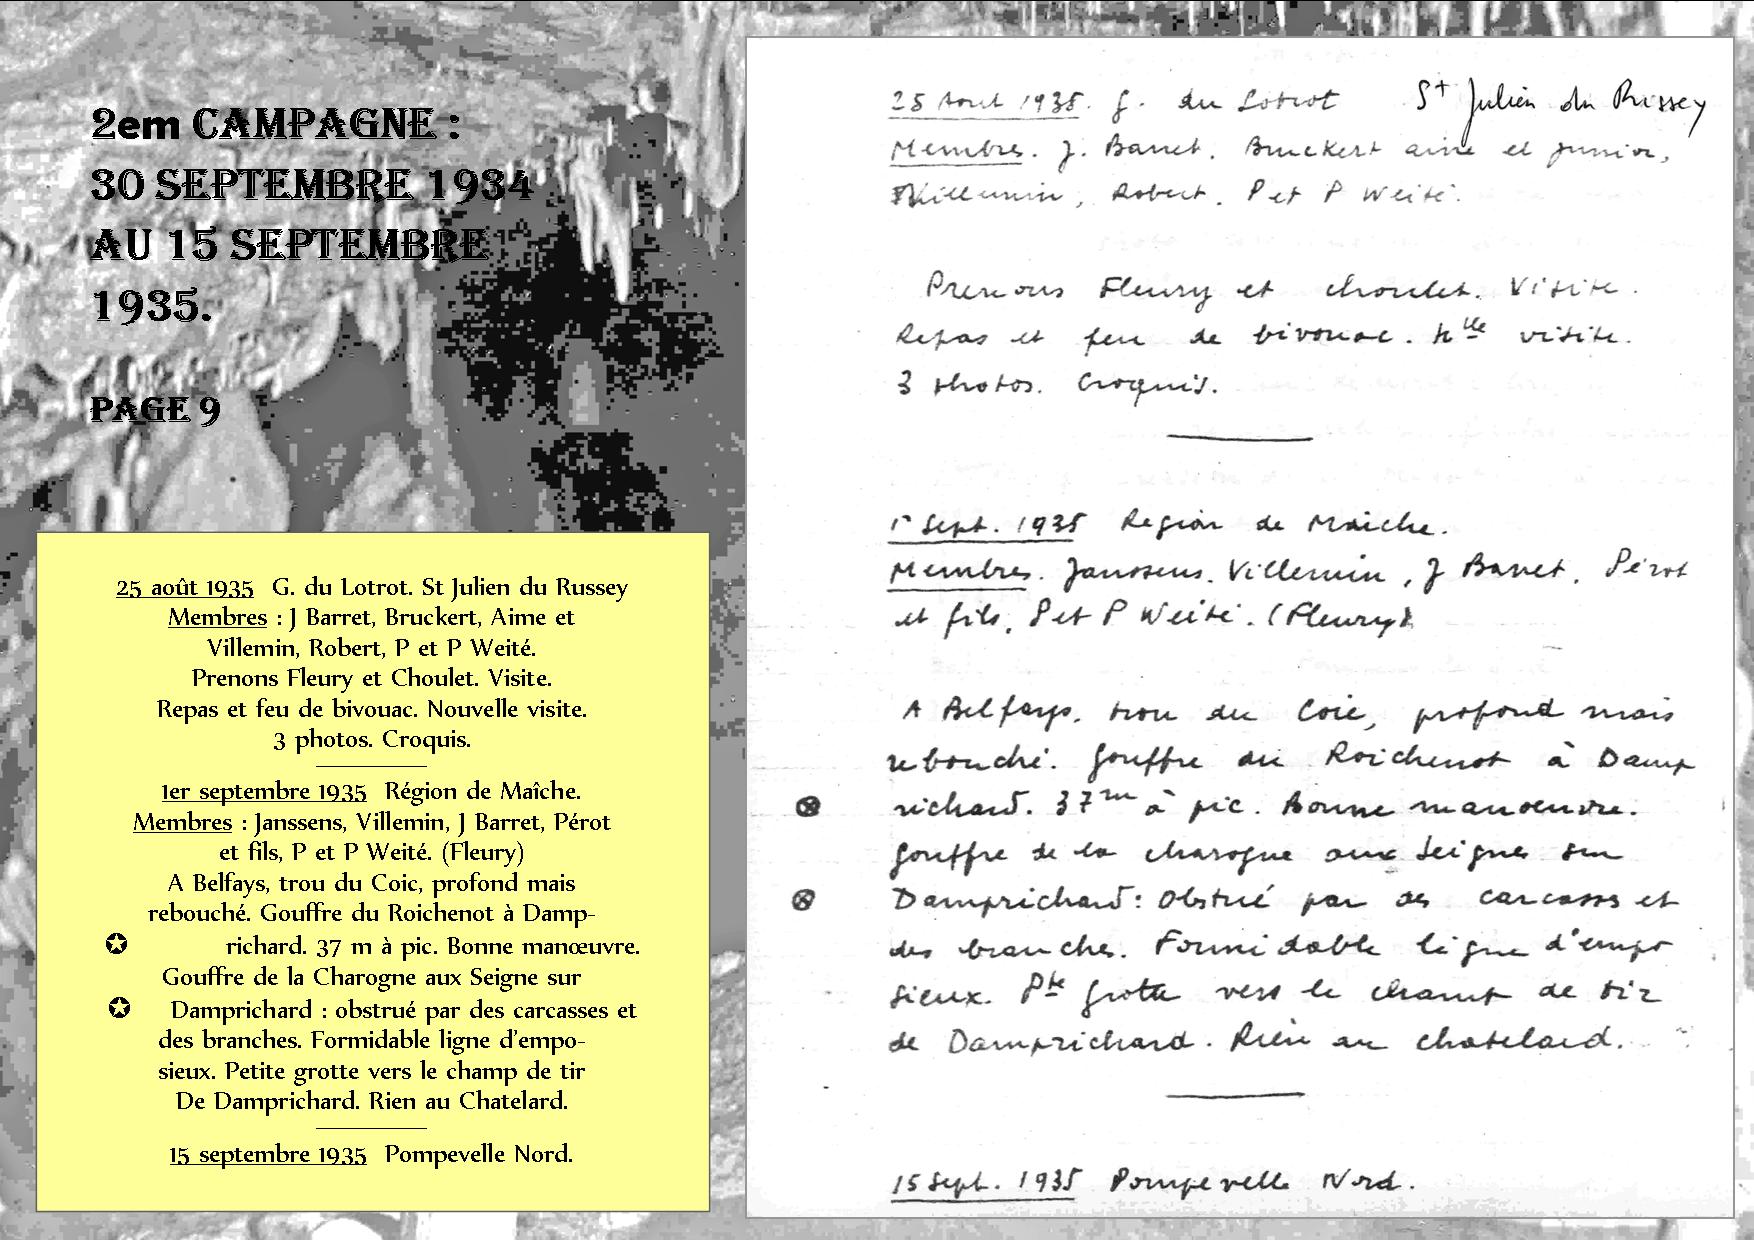 2em CAMPAGNE :
30 SEPTEMBRE 1934
AU 15 SEPTEMBRE
1935.
PAGE 9
25 août 1935 G. du Lotrot. St Julien du Russey
Membres : J Barret, Bruckert, Aime et
Villemin, Robert, P et P Weité.
Prenons Fleury et Choulet. Visite.
Repas et feu de bivouac. Nouvelle visite.
3 photos. Croquis.
1er septembre 1935 Région de Maîche.
Membres : Janssens, Villemin, J Barret, Pérot
et fils, P et P Weité. (Fleury)
A Belfays, trou du Coic, profond mais
rebouché. Gouffre du Roichenot à Damp-
richard. 37 m à pic. Bonne manœuvre.
Gouffre de la Charogne aux Seigne sur
Damprichard : obstrué par des carcasses et
des branches. Formidable ligne d'empo-
sieux. Petite grotte vers le champ de tir
De Damprichard. Rien au Chatelard.
15 septembre 1935 Pompevelle Nord.
25 Aout 1935. g. du Lotrot St Julien du Russey
Membres. J. Barret. Bruckert aine et junior,
Villemin, Robert. P et P Weité.
Prenons Fleury et Choulet. Visite.
Repas et feu de bivouac. Nlle visite.
3 photos. Croquis.
1r Sept. 1935 Region de Maiche.
Membres. Janssens. Villemin, J Barret. Pérot
et fils. P et P Weité. (Fleury)
A Belfays. trou du Coic, profond mais
rebouché. Gouffre du Roichenot à Damp
richard. 37m à pic. Bonne manoeuvre.
Gouffre de la charogne aux Seignes sur
Damprichard: Obstrué par des carcasses et
des branches. Formidable ligne d'empo
sieux. Pte grotte vers le champ de tir
de Damprichard. Rien au chatelard.
15 Sept. 1935 Pompevelle Nord.